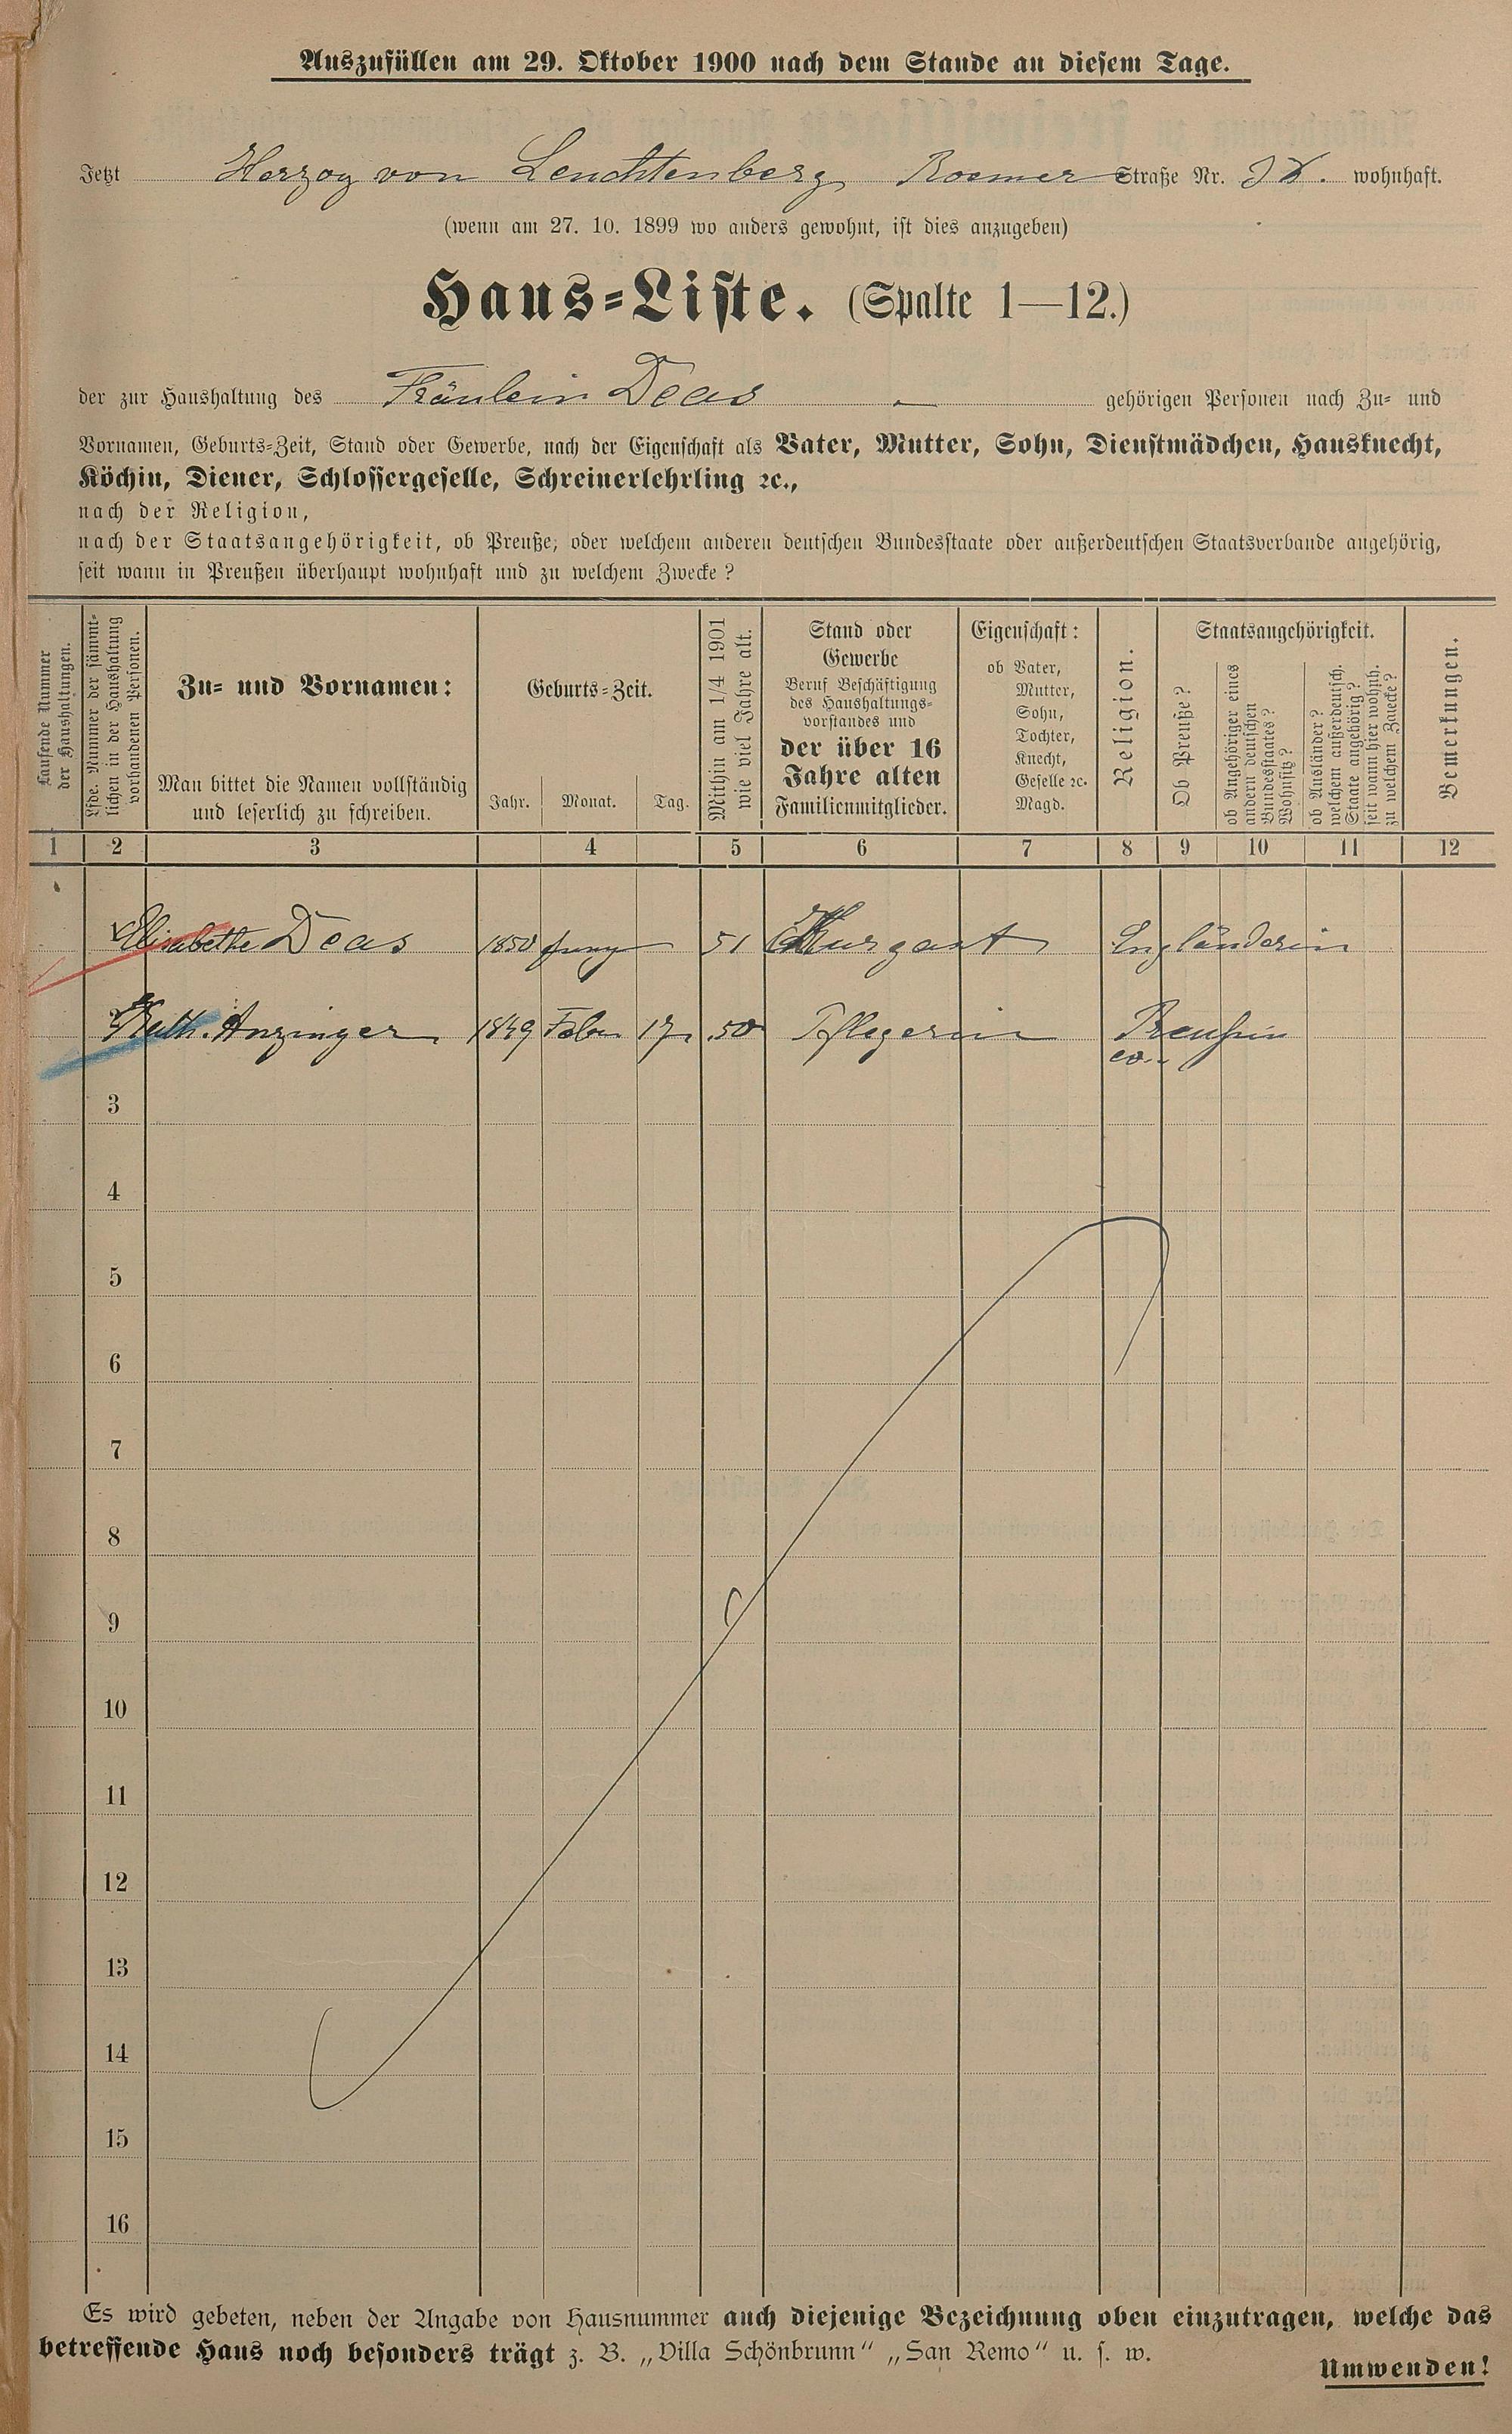 Auszufüllen am 29. Oktober 1900 nach dem Stande an diesem Tage.
Jetzt Herzog von Leuchtenberg Roemer Straße Nr. wohnhaft.
(wenn am 27. 10. 1899 wo anders gewohnt, ist dies anzugeben)
Haus-Liste. (Spalte 1—12.)
der zur Haushaltung des Fräulein Deas gehörigen Personen nach Zu- und
Vornamen, Geburts-Zeit, Stand oder Gewerbe, nach der Eigenschaft als Vater, Mutter, Sohn, Dienstmädchen, Hausknecht,
Köchin, Diener, Schlossergeselle, Schreinerlehrling ꝛc.,
nach der Religion,
nach der Staatsangehörigkeit, ob Preuße, oder welchem anderen deutschen Bundesstaate oder außerdeutschen Staatsverbande angehörig,
seit wann in Preußen überhaupt wohnhaft und zu welchem Zwecke?
Laufende Nummer
der Haushaltungen.
Lfde. Nummer der sämmt-
lichen in der Haushaltung
vorhandenen Personen.
Zu- und Vornamen:
Man bittet die Namen vollständig
und leserlich zu schreiben.
Geburts-Zeit.
Jahr. Monat. Tag.
Mithin am 1/4 1901
wie viel Jahre alt.
Stand oder
Gewerbe
Beruf Beschäftigung
des Haushaltungs-
vorstandes und
der über 16
Jahre alten
Familienmitglieder.
Eigenschaft:
ob Vater,
Mutter,
Sohn,
Tochter,
Knecht,
Geselle ꝛc.
Magd.
Religion.
Staatsangehörigkeit.
Ob Preuße?
ob Angehöriger eines
andern deutschen
Bundesstaates?
Wohnsitz?
ob Ausländer?
welchem außerdeutsch.
Staate angehörig?
seit wann hier wohnh.
zu welchem Zwecke?
Bemerkungen.
1 2 3 4 5 6 7 8 9 10 11 12
Elisabethe Deas 1850 51 Kurgast Engländerin
Kath. Anzinger 1849 Febr 17 50 Pflegerin Preußin
ev.
3
4
5
6
7
8
9
10
11
12
13
14
15
16
Es wird gebeten, neben der Angabe von Hausnummer auch diejenige Bezeichnung oben einzutragen, welche das
betreffende Haus noch besonders trägt z. B. „Villa Schönbrunn“ „San Remo“ u. s. w.
Umwenden!